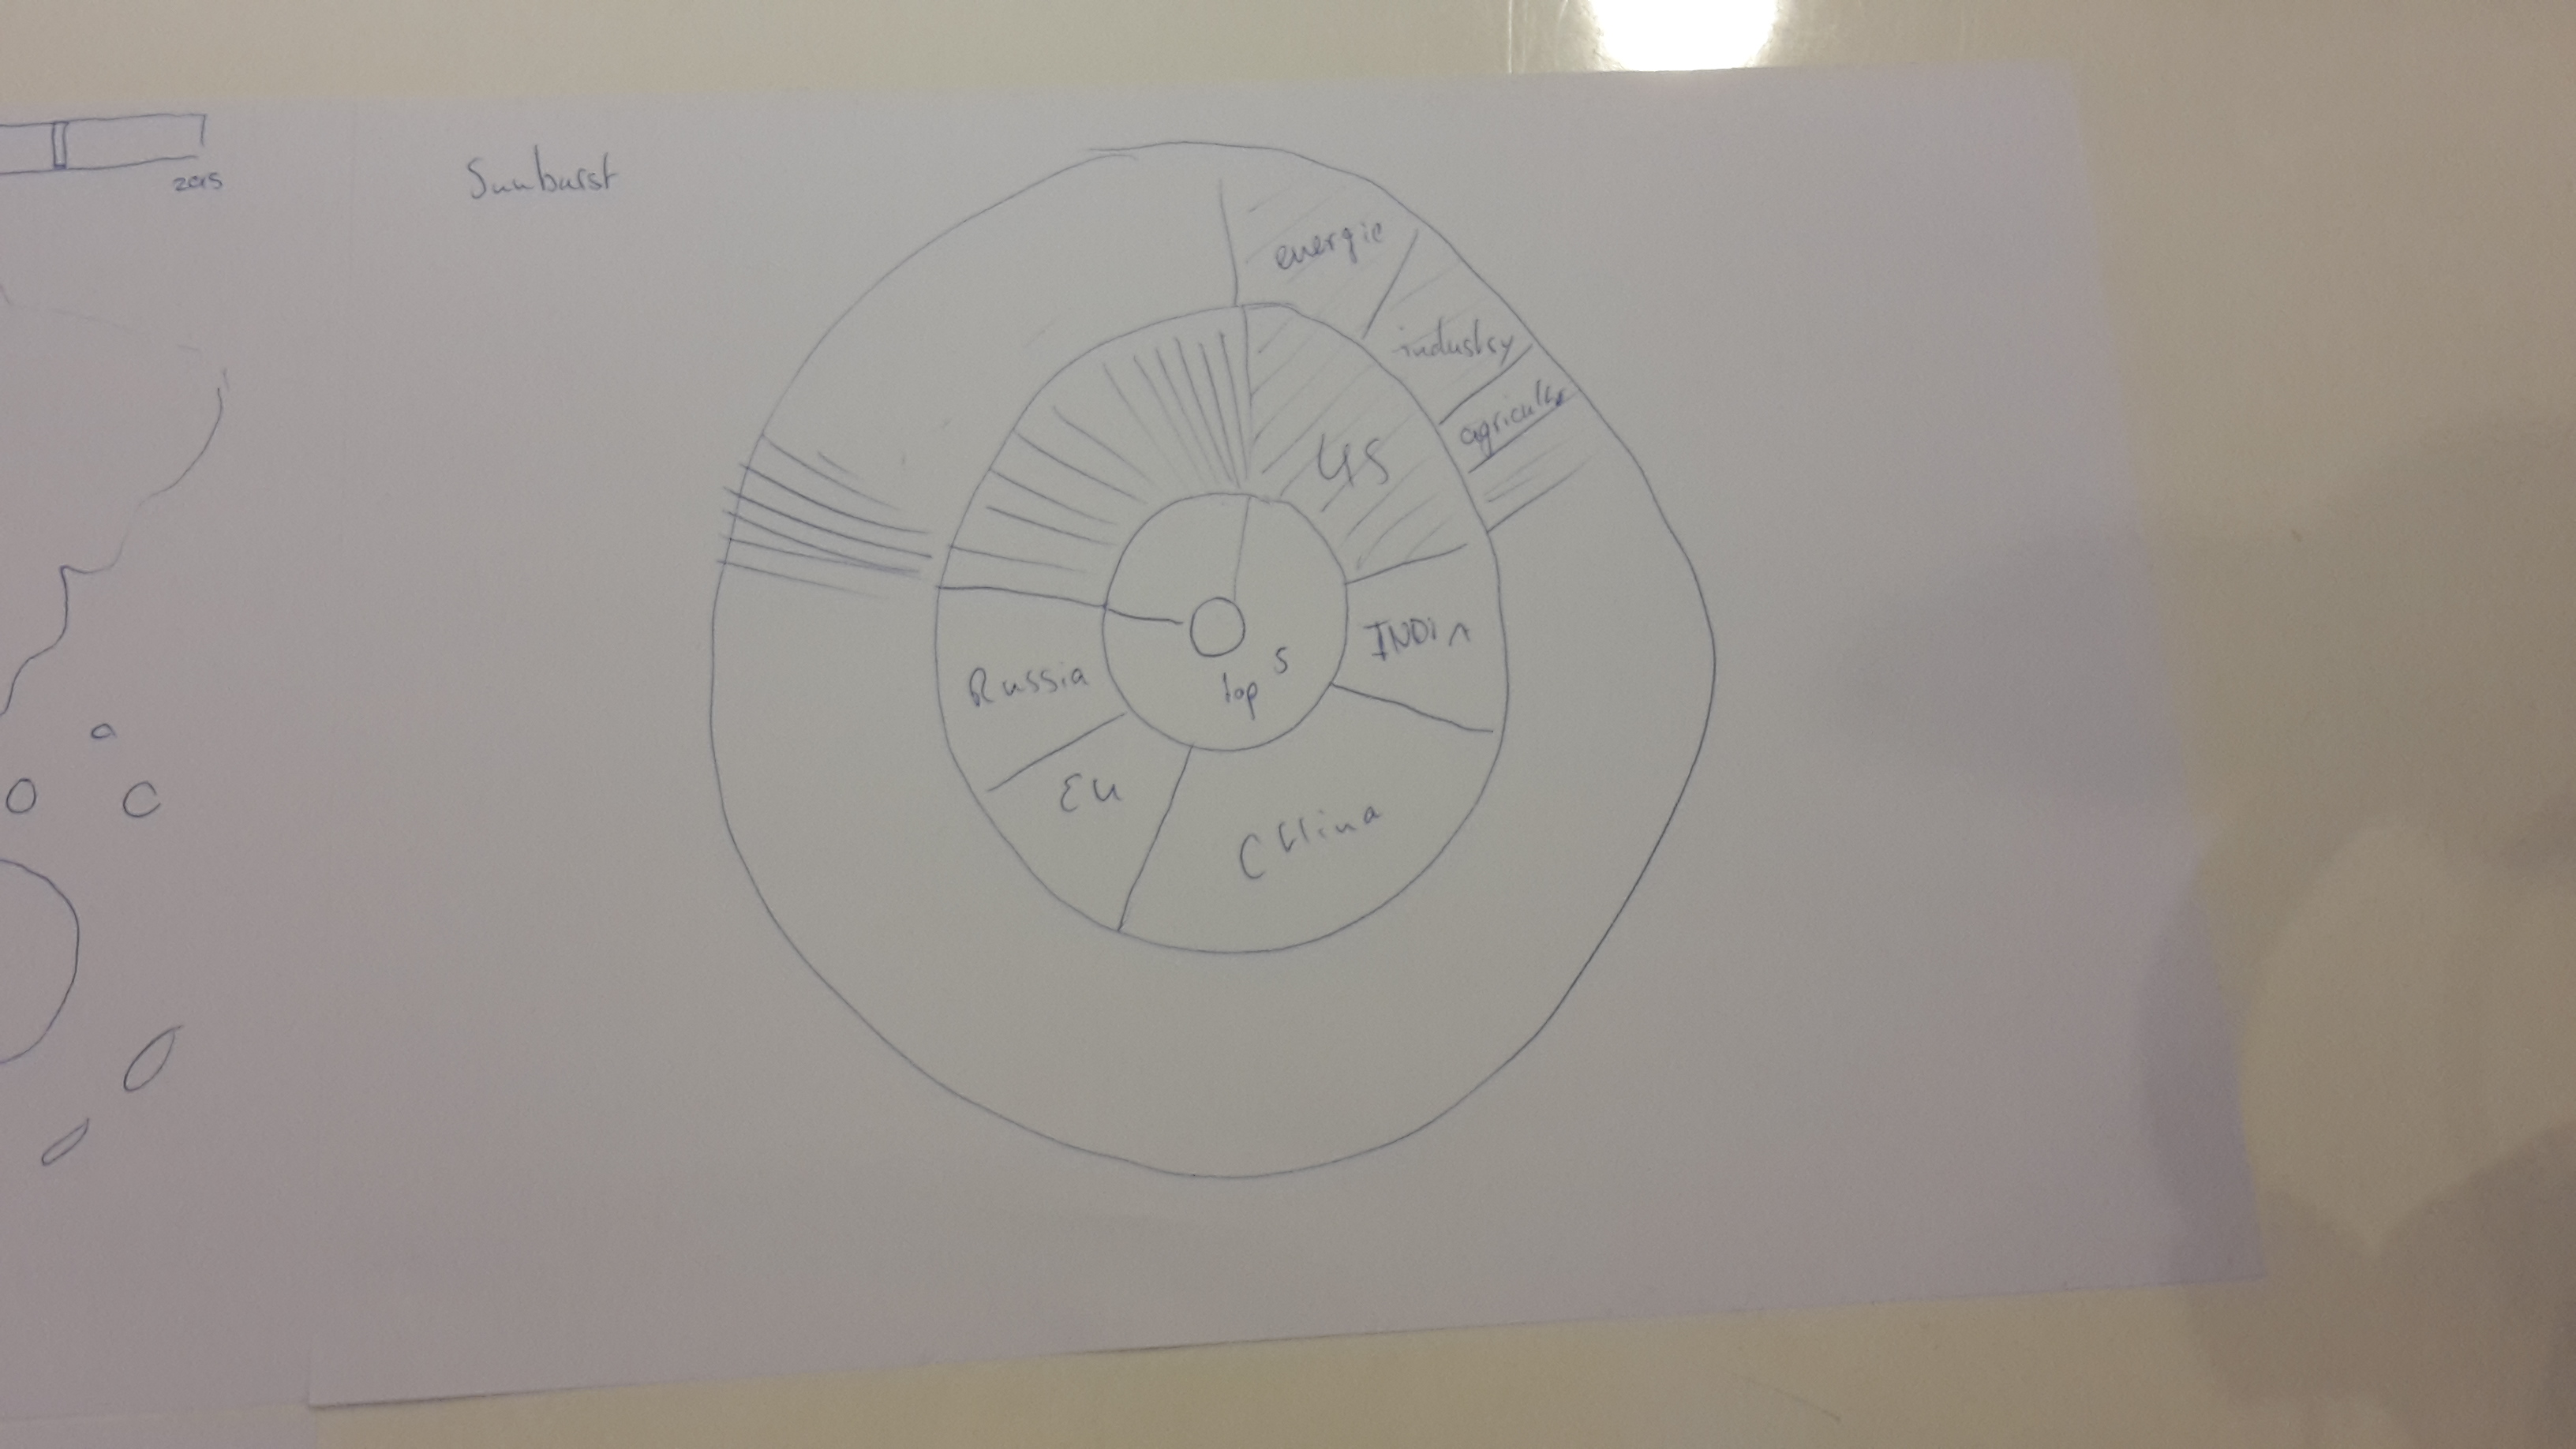 2015
Sunburst
energie
industry
agricultre
US
INDiA
top 5
Russia
EU
CHina